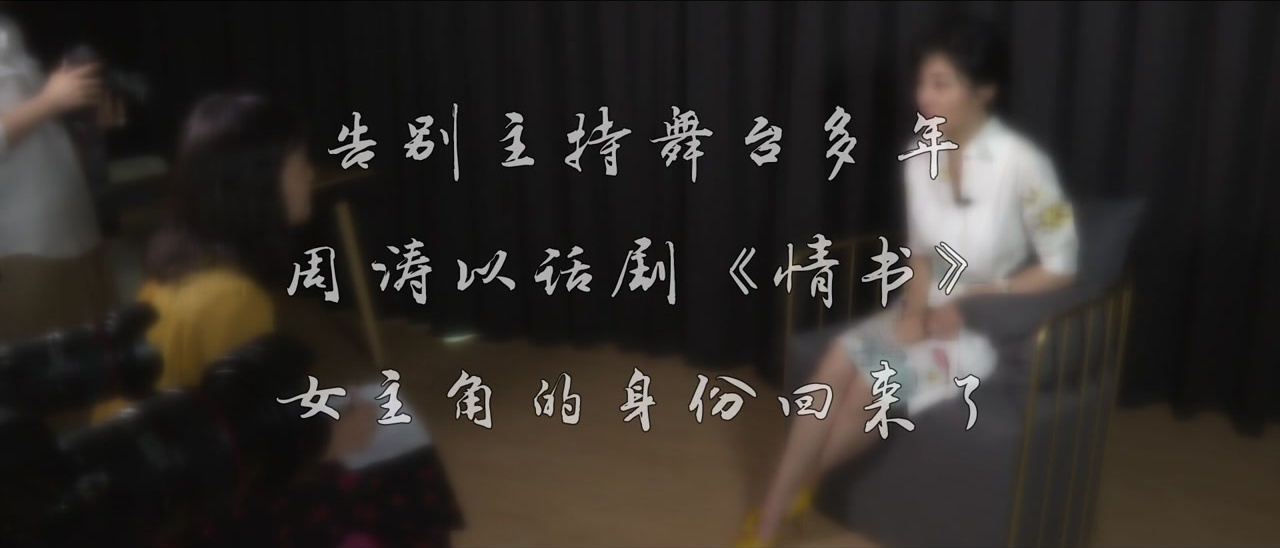 告别主持舞台多年
周涛以话剧《情书》
女主角的身份回来了